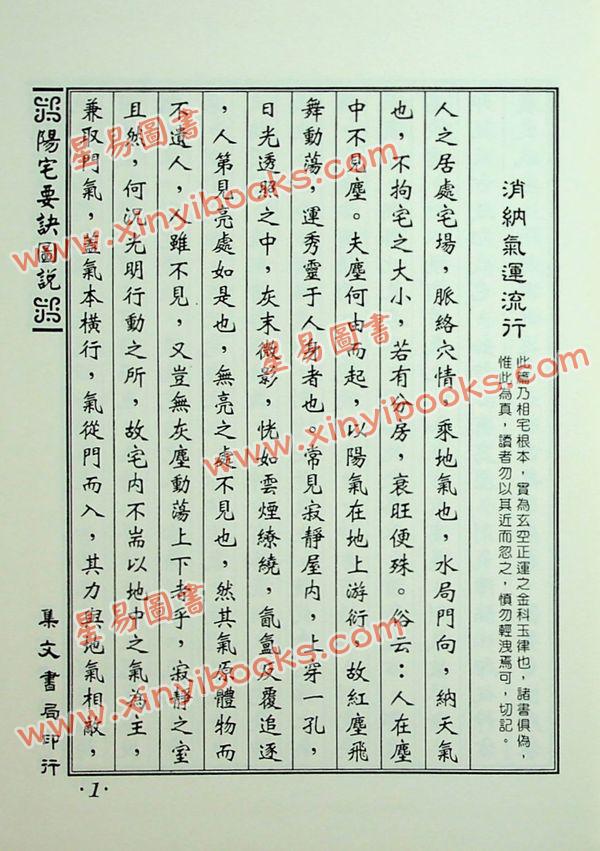 消納氣運流行
此篇乃相宅根本，實為玄空正運之金科玉律也，諸書俱偽，
惟此為真，讀者勿以其近而忽之，慎勿輕洩焉可，切記。
人之居處宅場，脈絡穴情，乘地氣也，水局門向，納天氣
也，不拘宅之大小，若有分房，衰旺便殊。俗云：人在塵
中不見塵。夫塵何由而起，以陽氣在地上游衍，故紅塵飛
舞動蕩，運秀靈于人身者也。常見寂靜屋內，上穿一孔，
日光透照之中，灰末微影，恍如雲煙繚繞，氤氳反覆追逐
，人第見亮處如是也，無亮之處不見也，然其氣原體物而
不遺人，人雖不見，又豈無灰塵動蕩上下者乎，寂靜之室
且然，何況光明行動之所，故宅內不耑以地中之氣為主，
兼取門氣，蓋氣本橫行，氣從門而入，其力與地氣相敵，
陽宅要訣圖說
集文書局印行
·1·
星易圖書
www.xinyibooks.com
星易圖書
www.xinyibooks.com
星易圖書
www.xinyibooks.com